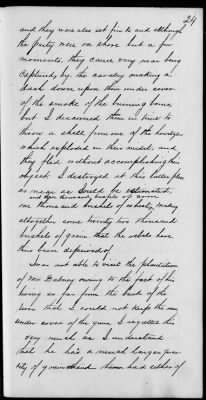 24
and they were also set fire to and although
the party were on shore but a few
moments, they came very near being
captured by the cavalry making a
dash down upon them under cover
of the smoke of the burning barns,
but I discovered them in time to
throw a shell from one of the howitzers
which exploded in their midst, and
they fled without accomplishing their
object. I destroyed at this latter place
as near as could be estimated
and five thousand bushels of corn
one thousand bushels of wheat, making
altogether some twenty two thousand
bushels of grain that the rebels have
thus been deprived of.
I was not able to visit the plantation
of Mr Dabney owing to the fact of his
living so far from the bank of the
river that I could not keep the men
under cover of the guns. I regretted this
very much as I understand
that he has a much larger quan-
tity of grain on hand than had either of